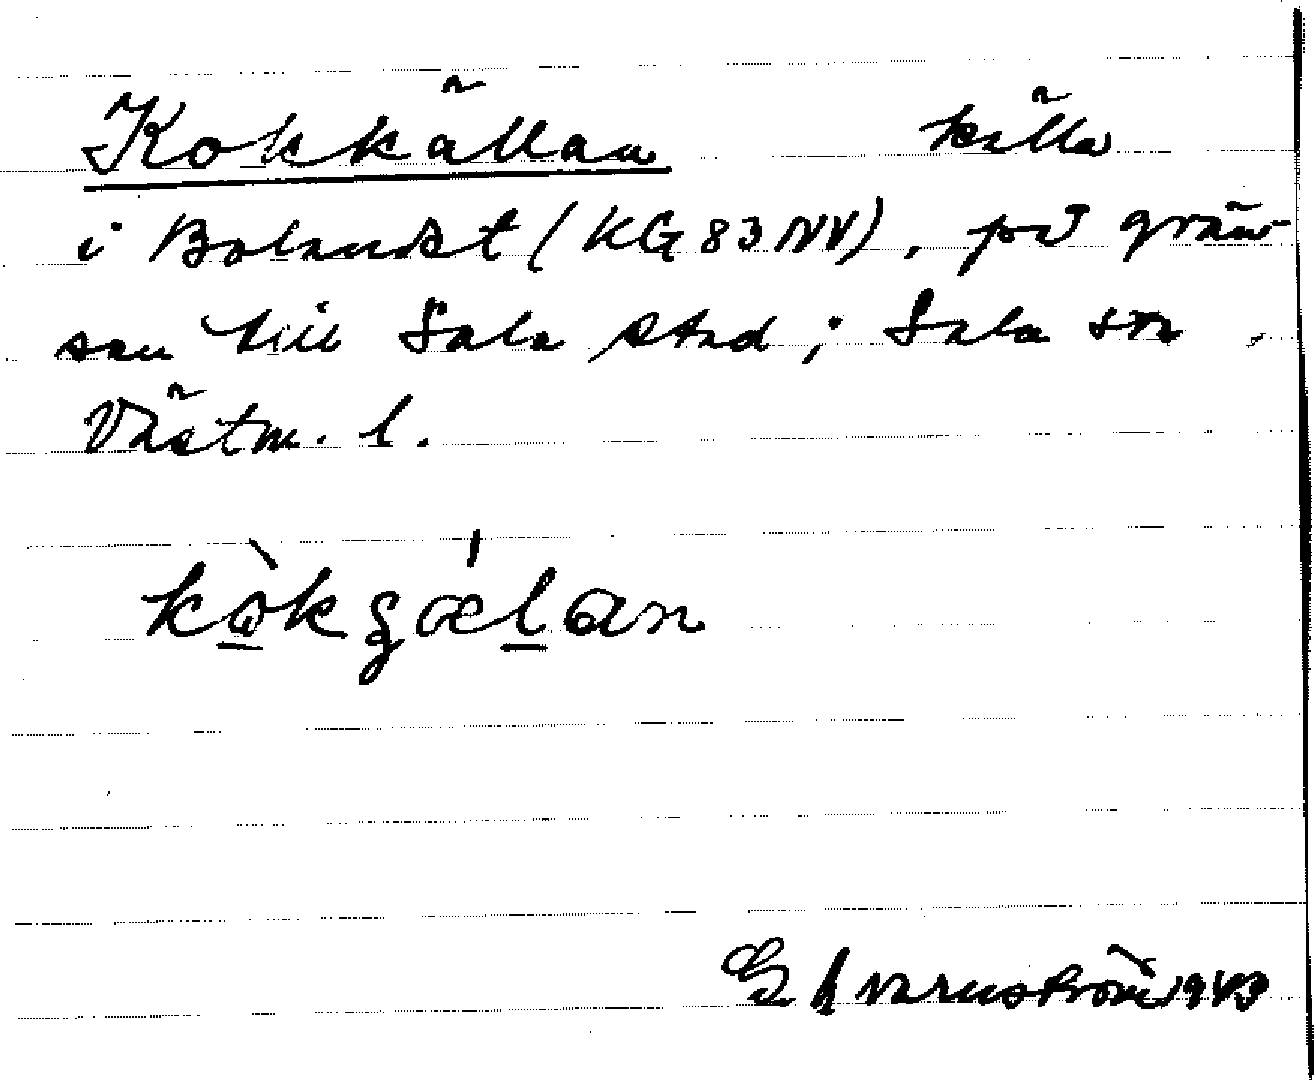 Kokkällan källa
i Bolandet (KG 83 NV), på grän-
sen till Sala stad; Sala sn,
Västm. l.
E A Varnström 1943